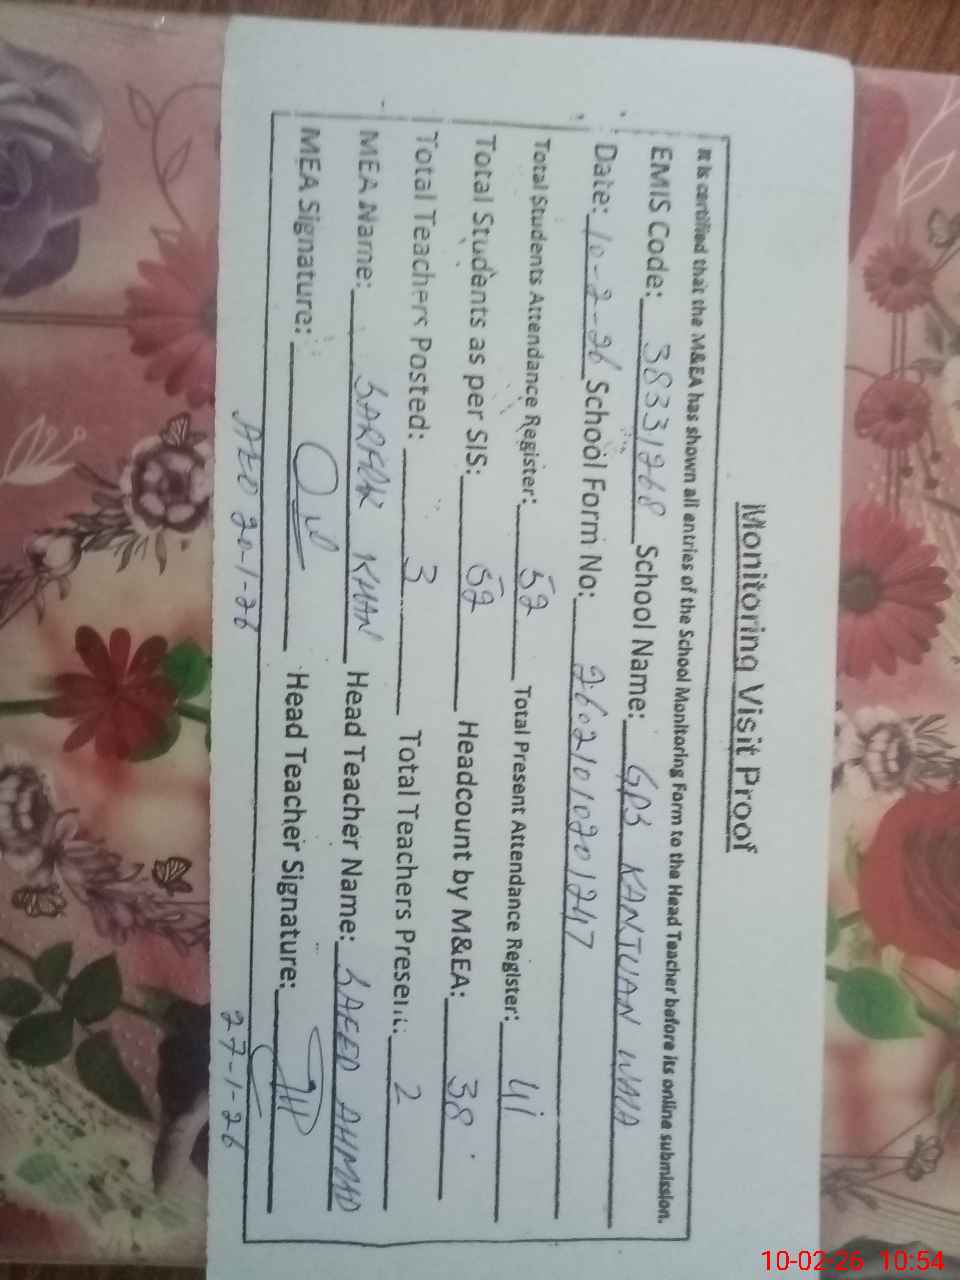 Monitoring Visit Proof
It is certified that the M&EA has shown all entries of the School Monitoring Form to the Head Teacher before its online submission.
EMIS Code: 38331268 School Name: GPS KANJUAN WALA
Date: 10-2-26 School Form No: 26021010201247
Total Students Attendance Register: 52 Total Present Attendance Register: 41
Total Students as per SIS: 52 Headcount by M&EA: 38
Total Teachers Posted: 3 Total Teachers Present: 2
MEA Name: SARFDR KHAN Head Teacher Name: SAEED AHMAD
MEA Signature: Head Teacher Signature:
AEO 20-1-26 27-1-26
10-02-26 10:54